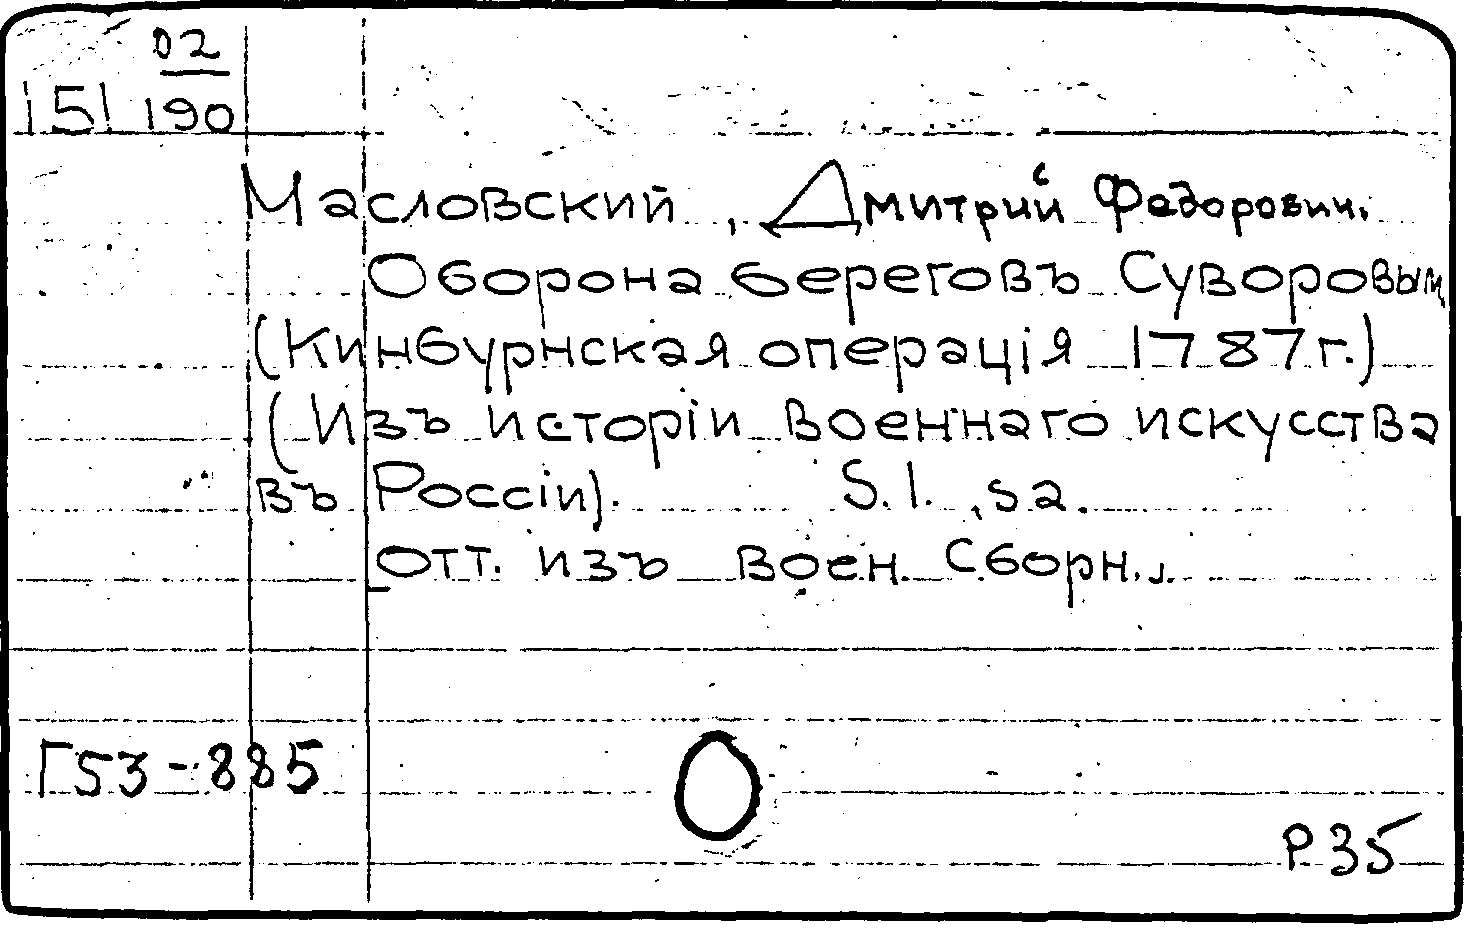 02
151 190
Масловский, Дмитрий Федорович.
Оборона береговъ Суворовым
(Кинбурнская операція 1787 г.)
(Изъ исторіи военнаго искусства
въ Россіи). S. l., s a.
Отт. изъ Воен. Сборн.
Г53-885
Р35